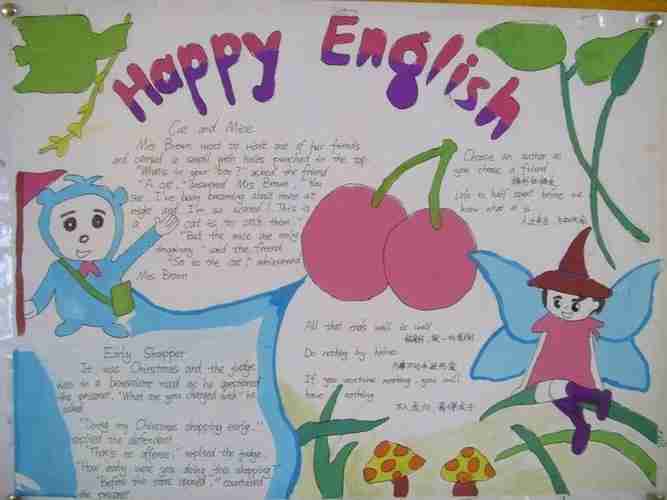 Happy English
Cat and Mice
Mrs Brown went to visit one of her friends
and carried a small box with holes punched in the top.
"What's in your box?" asked the friend
"A cat," answered Mrs Brown, "You
see, I've been dreaming about mice at
night and I'm so scared! This is
a cat is to catch them."
"But the mice are only
imaginary," said the friend
"So is the cat," whispered
Mrs Brown
Choose an author as
you choose a friend
Life is half spent before we
know what it is
All that ends well is well
Do nothing by halves
If you venture nothing, you will
have nothing
Early Shopper
It was Christmas and the judge
was in a benevolent mood as he questioned
the prisoner. "What are you charged with" he
asked
"Doing my Christmas shopping early,"
replied the defendant
"That's no offense," replied the judge.
"How early were you doing this shopping"
"Before the store opened," countered
the prisoner